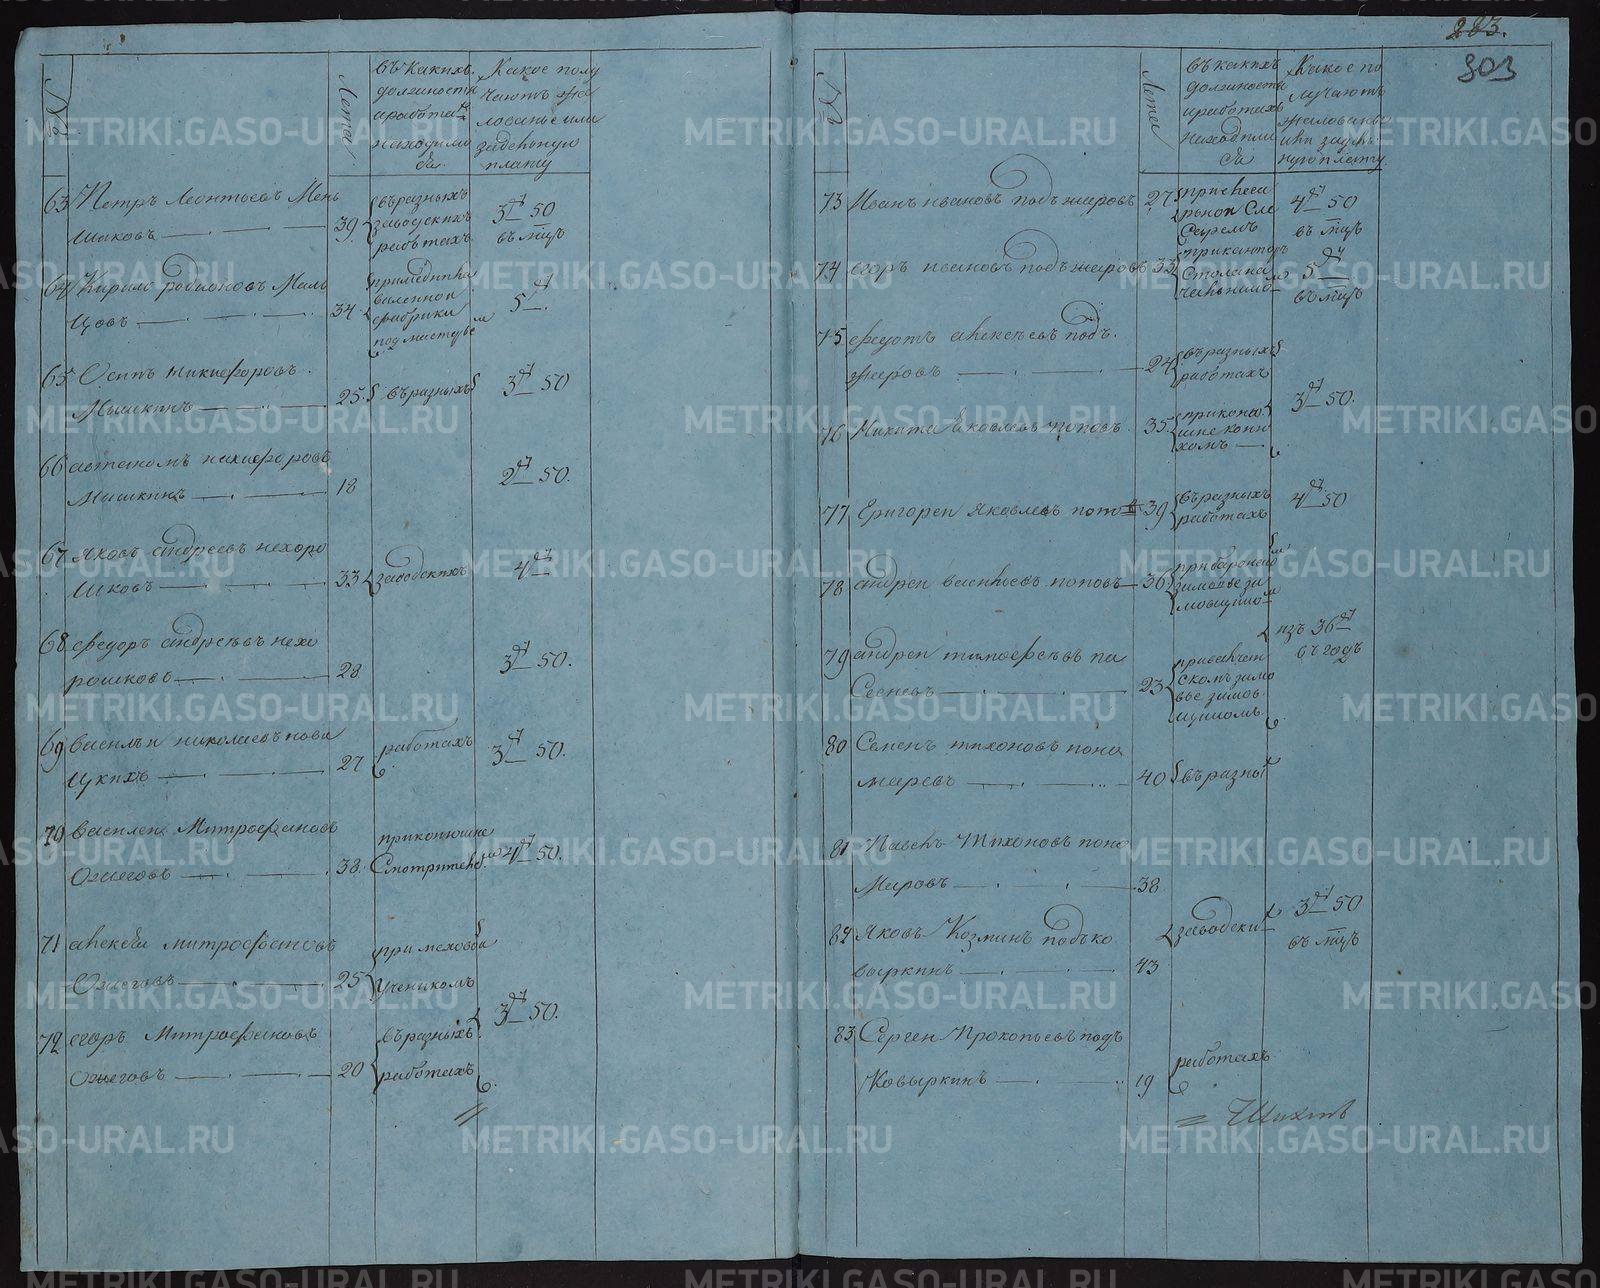 223.
303
№
Лета
въ какихъ
должностя
и работахъ
находимо
ся
Какое полу
чаютъ жа
лованье или
задѣльную
плату
63 Петръ Леонтьевъ Мень
шиковъ 39
въ разныхъ
заводскихъ
работахъ
3 50
въ мцъ
64 Кирилъ родионовъ Маль
цовъ 34
фабрики
5
65 Осипъ никифоровъ
Мышкинъ 25 въ разныхъ 3 50
66 никифоровъ
Мышкинъ 18 2 50.
67 яковъ андреевъ нехоро
шковъ 33 заводскихъ 4
68 федоръ андреевъ нехо
рошковъ 28 3 50.
69 василѣи николаевъ нови
цкихъ 27 работахъ 3 50.
70 василеи Митрофановъ
Ожеговъ 38 при конюшне
Смотрителемъ 4 50.
71 алексѣи митрофановъ
Ожеговъ 25 при меховои
ученикомъ
72 егоръ Митрофановъ
Ожеговъ 20 въ разныхъ
работахъ 3 50.
№
Лета
въ какихъ
должностя
и работахъ
находили
ся
Какое по
лучаютъ
жалованье
или задѣль
ную плату
73 Иванъ ивановъ подъжаровъ 27
при слеса
рьнои Сле
Саремъ
4 50
въ мцъ
74 егоръ ивановъ подъжаровъ 33
при канторѣ
5
въ мцъ
75 федотъ алексѣевъ подъ
жаровъ 24
въ разныхъ
работахъ
3 50.
76 Никита Яковлевъ поповъ 35
при коню
шне коню
хомъ
77 Григореи Яковлевъ попо 39
въ разныхъ
работахъ
4 50
78 андреи васильевъ поповъ 36
зимовье зи
мовщико
изъ 36
въ годъ
79 андреи тимофеевъ па
Сеневъ 23
скомъ зимо
вье зимов
щикомъ
80 Семенъ тихоновъ поно
маревъ 40 въ разны
81 Павелъ Тихоновъ поно
Маровъ 38
82 Яковъ Козминъ подъко
выркинъ 43
заводски
3 50
въ мцъ
83 Сергеи Прокопьевъ подъ
Ковыркинъ 19
работахъ
METRIKI.GASO-URAL.RU